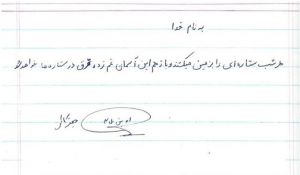 به نام خدا
هر شب ستاره ای را بزمین میکشند و باز هم این آسمان غم زده غرق در ستاره ها خواهد بود